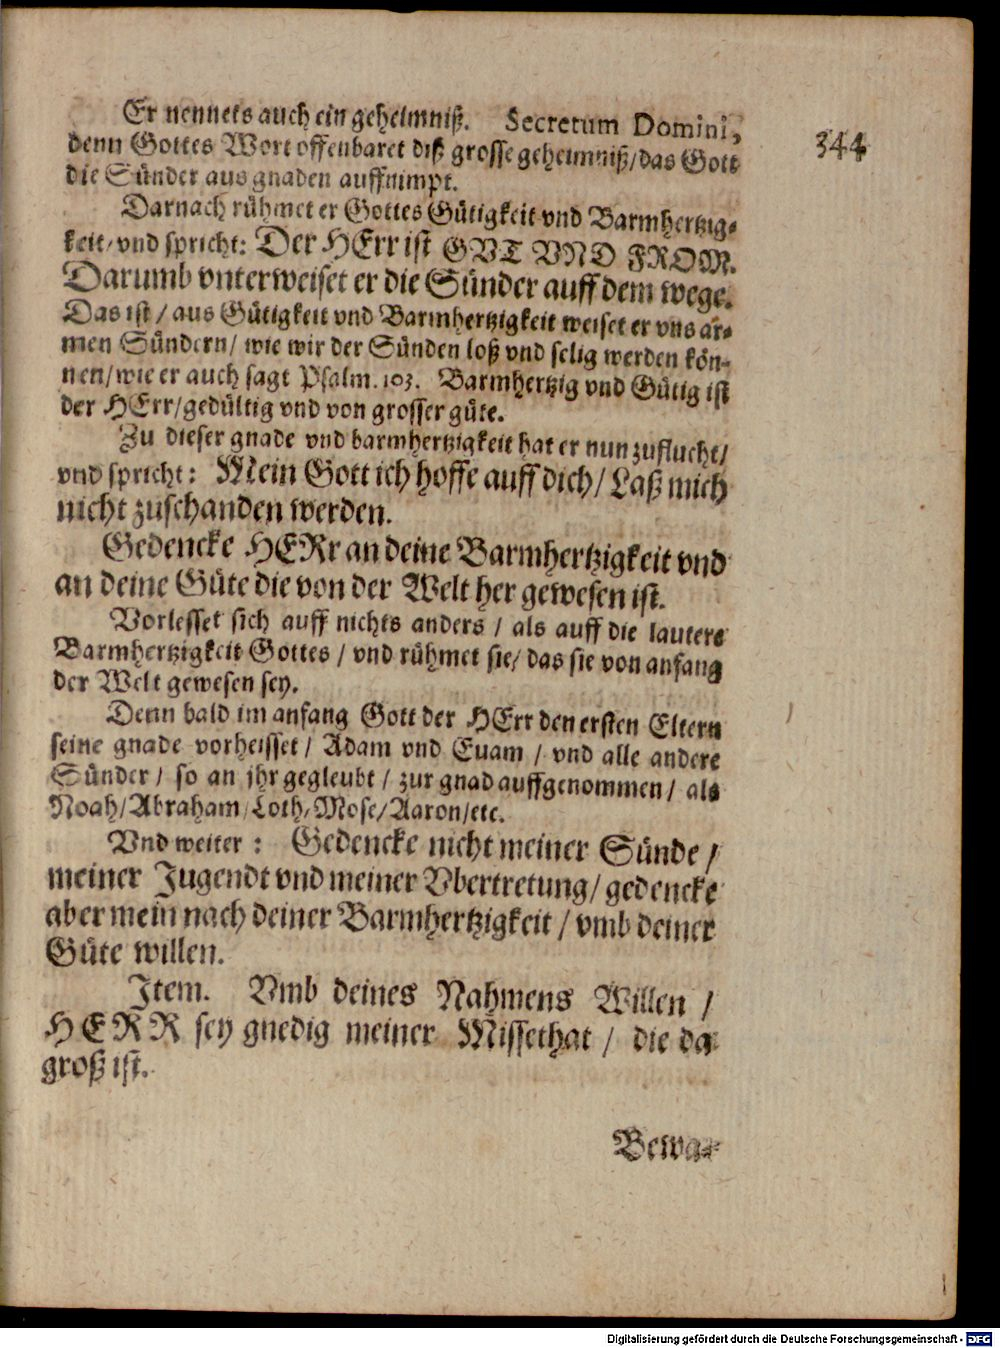 Er nennets auch ein geheimniß. Secretum Domini,
denn Gottes Wort offenbaret diß grosse geheimniß/das Gott
die Sünder aus gnaden auffnimpt.
344
Darnach rühmet er Gottes Gütigkeit vnd Barmhertzig-
keit/vnd spricht: Der HErr ist GVT VND FROM.
Darumb vnterweiset er die Sünder auff dem wege.
Das ist / aus Gütigkeit vnd Barmhertzigkeit weiset er vns ar-
men Sündern/ wie wir der Sünden loß vnd selig werden kön-
nen/wie er auch sagt Psalm. 103. Barmhertzig vnd Gütig ist
der HErr/gedültig vnd von grosser güte.
Zu dieser gnade vnd barmhertzigkeit hat er nun zuflucht/
vnd spricht: Mein Gott ich hoffe auff dich/ Laß mich
nicht zuschanden werden.
Gedencke HERr an deine Barmhertzigkeit vnd
an deine Güte die von der Welt her gewesen ist.
Vorlesset sich auff nichts anders / als auff die lautere
Barmhertzigkeit Gottes / vnd rühmet sie/ das sie von anfang
der Welt gewesen sey.
Denn bald im anfang Gott der HErr den ersten Eltern
seine gnade vorheisset / Adam vnd Euam / vnd alle andere
Sünder / so an jhr gegleubt / zur gnad auffgenommen / als
Noah/Abraham/Loth/Mose/Aaron/etc.
Vnd weiter : Gedencke nicht meiner Sünde /
meiner Jugendt vnd meiner Vbertretung/ gedencke
aber mein nach deiner Barmhertzigkeit / vmb deiner
Güte willen.
Item. Vmb deines Nahmens Willen /
HERR sey gnedig meiner Missethat / die da
groß ist.
Bewa-
Digitalisierung gefördert durch die Deutsche Forschungsgemeinschaft - DFG